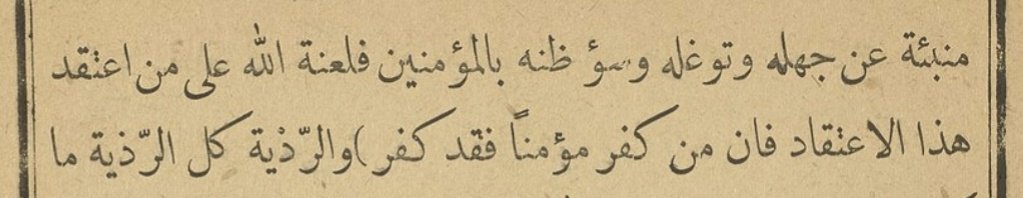 منبئة عن جهله وتوغله وسؤ ظنه بالمؤمنين فلعنة الله على من اعتقد
هذا الاعتقاد فان من كفر مؤمناً فقد كفر )والرّذية كل الرّذية ما